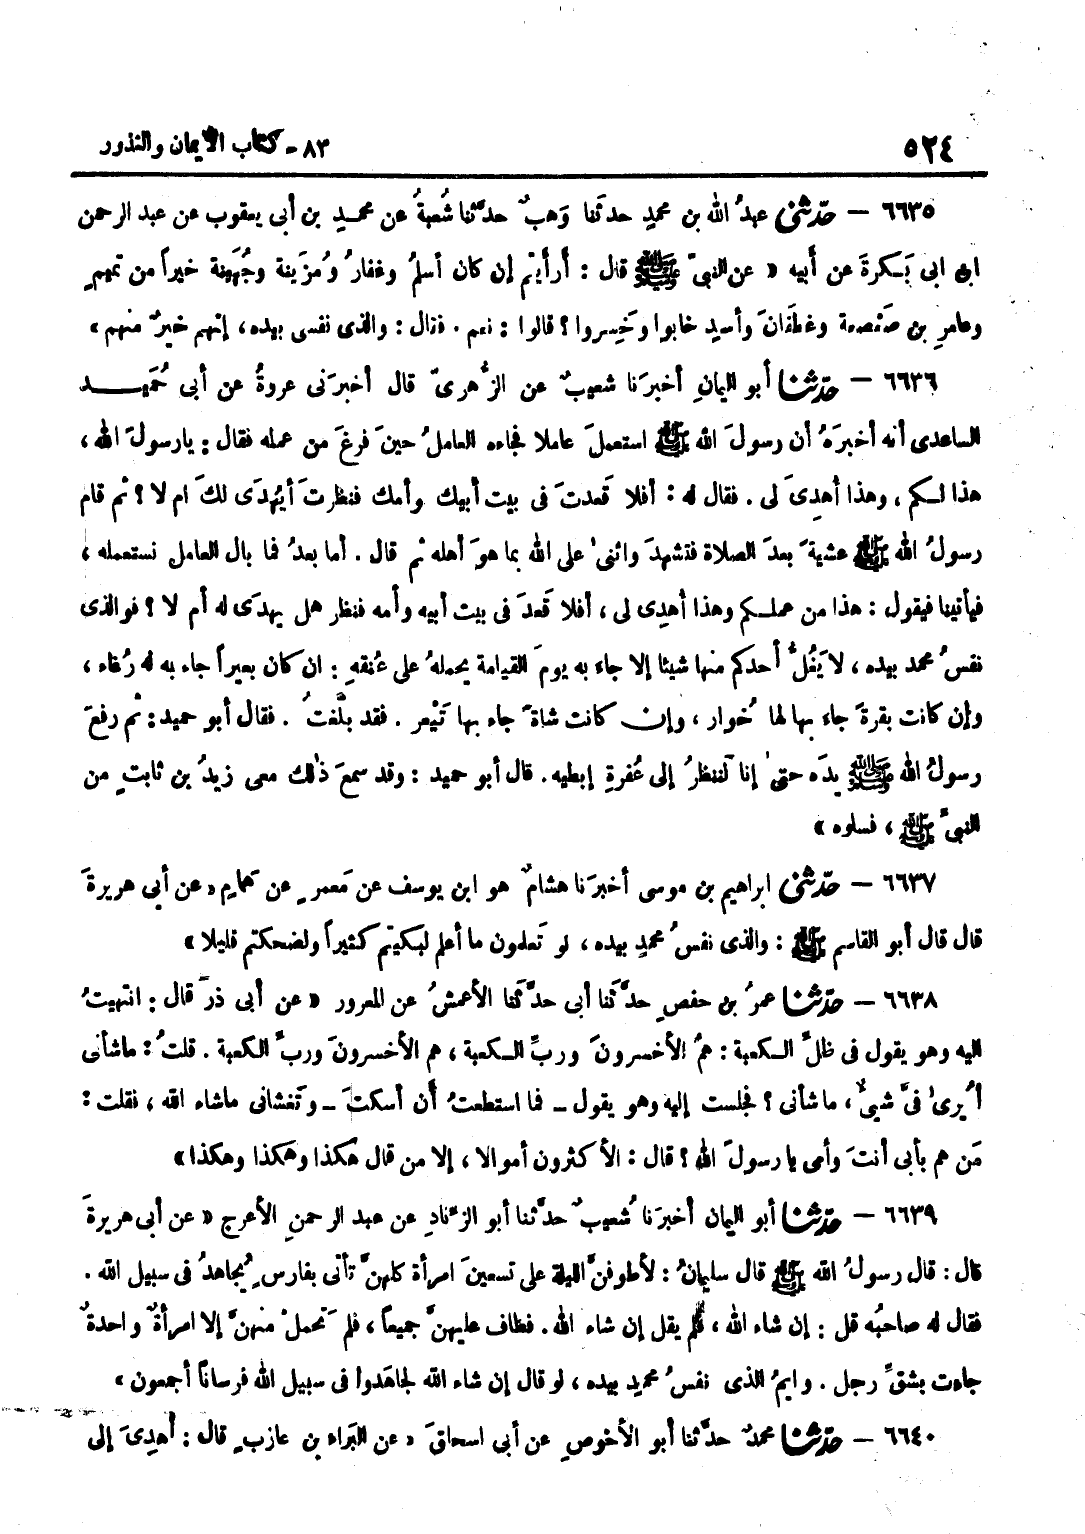 ٥٢٤
٨٣ - كتاب الأيمان والنذور
٦٦٣٥ - حدّثنى عبدُ الله بن محمدٍ حدثنا وَهبٌ حدَّثنا شُعبةُ عن محمدِ بن أبى يعقوب عن عبد الرحمن
ابن ابى بَكرةَ عن أبيه « عن النبىِّ ﷺ قال : أرأيتم إن كان أسلمُ وغفارُ ومُزَينة وجُهَينة خيراً من تميمٍ
وعامرِ بن صَعْصعة وغطَفانَ وأسدٍ خابوا وخَسِروا ؟ قالوا : نعم . فقال : والذى نفسى بيده ، إنهم خيرٌ منهم »
٦٦٣٦ - حدّثنا أبو اليمانِ أخبرَنا شعيبٌ عن الزُّهرىِّ قال أخبرَنى عروةُ عن أبى حُمَيد
الساعدى أنه أخبرَهُ أن رسولَ الله ﷺ استعملَ عاملا فجاءه العاملُ حينَ فرغَ من عمله فقال : يارسولَ الله ،
هذا لكم ، وهذا أُهدِىَ لى . فقال له : أفلا قَعدتَ فى بيت أبيك وأمك فنظرتَ أيُهدَى لكَ ام لا ؟ ثم قام
رسولُ الله ﷺ عشيةَ بعدَ الصلاة فتشهدَ واثنىٰ على الله بما هوَ أهله ثم قال . أما بعدُ فما بال العامل نستعمله ،
فيأتينا فيقول : هذا من عملكم وهذا أُهدِى لى ، أفلا قَعدَ فى بيت أبيه وأمه فنظر هل يهدَى له أم لا ؟ فوالذى
نفسُ محمد بيده ، لا يَغُلُّ أحدكم منها شيئا إلا جاء به يومَ القيامة يحملهُ على عُنقهِ : ان كان بعيراً جاء به له رُغاء ،
وإن كانت بقرةً جاء بها لها خُوار ، وإن كانت شاةً جاء بها تَيْعر . فقد بلَّغتُ . فقال أبو حميد : ثم رفعَ
رسولُ الله ﷺ يدَه حتىٰ إنا لَننظرُ إلى عُفرةِ إبطيه . قال أبو حميد : وقد سمعَ ذٰلك معى زيدُ بن ثابتٍ من
النبىِّ ﷺ ، فسلوه »
٦٦٣٧ - حدّثنى ابراهيم بن موسى أخبرَنا هشامٌ هو ابن يوسف عن مَعمرٍ عن هَمامٍ « عن أبى هريرةَ
قال قال أبو القاسم ﷺ : والذى نفسُ محمدٍ بيده ، لو تَعلمون ما أعلم لبكيتم كثيراً ولضحكتم قليلا »
٦٦٣٨ - حدّثنا عمرُ بن حفصٍ حدَّثَنا أبى حدَّثَنا الأعمشُ عن المعرور « عن أبى ذرّ قال : انتهيتُ
اليه وهو يقول فى ظلِّ الكعبة : همُ الأخسرونَ وربِّ الكعبة ، هم الأخسرونَ وربِّ الكعبة . قلتُ : ماشأنى
أيُرىٰ فىَّ شىءٌ ، ماشأنى ؟ فجلست إليه وهو يقول - فما استطعتُ أن أسكتَ - وتَغشانى ماشاء الله ، فقلت :
مَن هم بأبى أنتَ وأمى يا رسولَ الله ؟ قال : الأكثرون أموالا ، إلا من قال هٰكذا وهٰكذا وهكذا »
٦٦٣٩ - حدّثنا أبو اليمان أخبرَنا شُعيبٌ حدَّثنا أبو الزِّنادِ عن عبد الرحمنِ الأعرج « عن أبى هريرةَ
قال : قال رسولُ الله ﷺ قال سليمانُ : لأطوفنَّ الليلة على تسعينَ امرأة كلهنَّ تأتى بفارسٍ يُجاهدُ فى سبيل الله .
فقال له صاحبُه قل : إن شاء الله ، فلم يقل إن شاء الله . فطاف عليهنَّ جميعاً ، فلم تَحملْ منهنَّ إلا امرأةٌ واحدةٌ
جاءت بشقِّ رجل . وايمُ الذى نفسُ محمدٍ بيده ، لو قال إن شاء الله لجاهَدوا فى سبيل الله فرساناً أجمعون »
٦٦٤٠ - حدّثنا محمدٌ حدَّثنا أبو الأحوصِ عن أبى اسحاقَ « عن البَراء بن عازبٍ قال : أُهدِىَ إلى